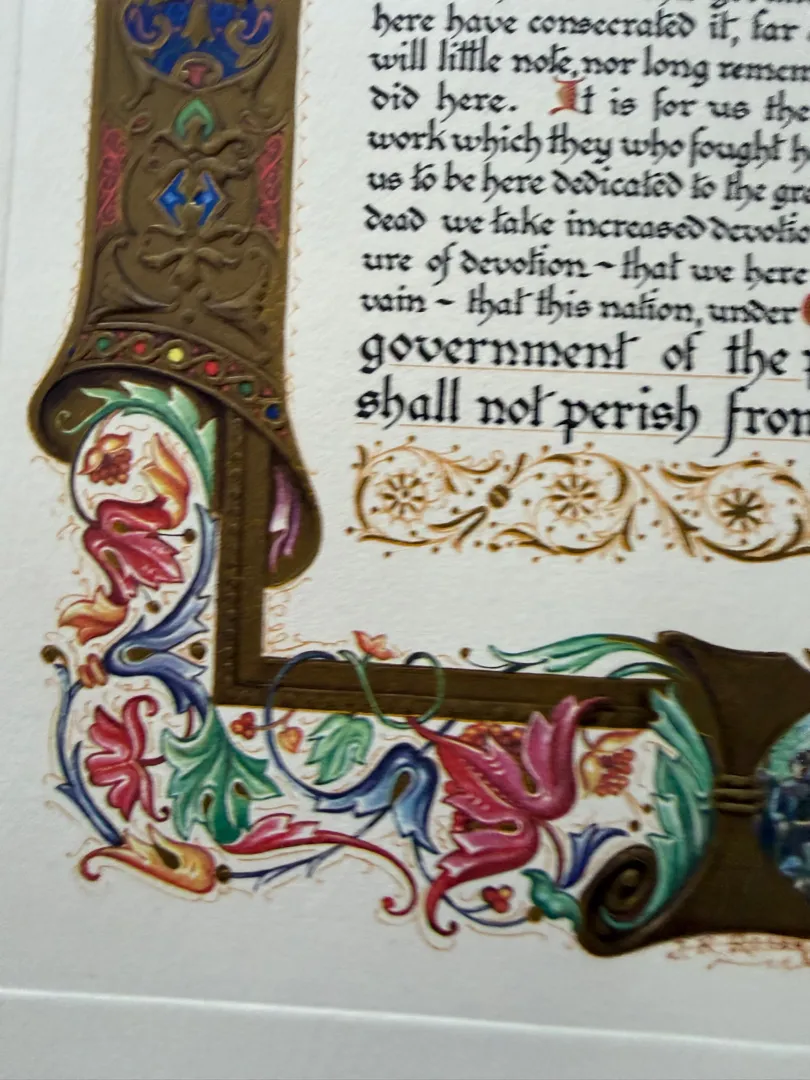 here have consecrated it, far
will little note, nor long remem
did here. It is for us the
work which they who fought h
us to be here dedicated to the gre
dead we take increased devotio
ure of devotion ~ that we here
vain ~ that this nation, under
government of the p
shall not perish from